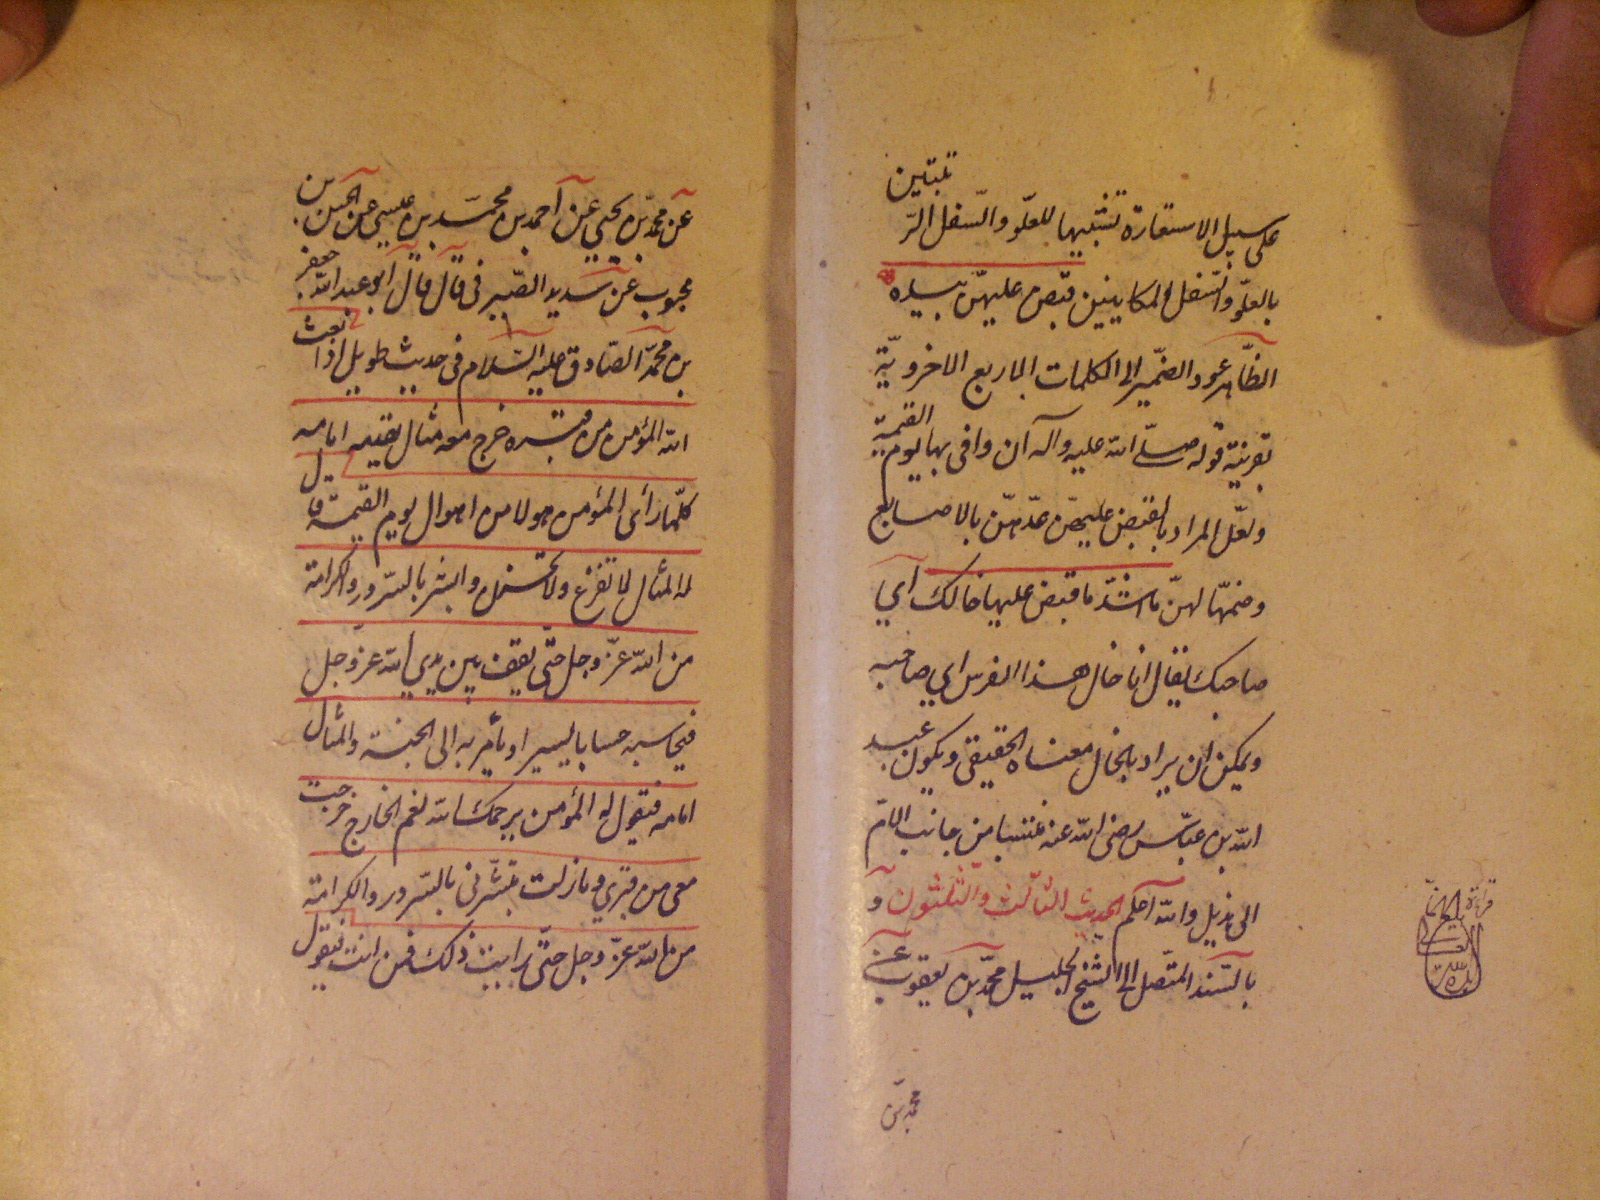 على سبيل الاستعارة تشبيها للعلو والسفل الرتبتين
بالعلو والسفل المكانيين قبض عليهن بيده
الظاهر عود الضمير الى الكلمات الاربع الاخروية
بقرينة قوله صلى الله عليه وآله ان وافى بها يوم القيمة
ولعل المراد بالقبض عليهن عدهن بالاصابع
وضمها لهن ما اشد ما قبض عليها خالك اي
صاحبك يقال انا خال هذا الفرس اي صاحبه
ويمكن ان يراد بالخال معناه الحقيقي ويكون عبد
الله بن عباس رضى الله عنه منتسبا من جانب الام
الى هذيل والله اعلم الحديث الثالث والثلثون و
بالسند المتصل الى الشيخ الجليل محمد بن يعقوب عن
محمد بن
عن محمد بن يحيى عن احمد بن محمد بن عيسى عن الحسن بن
محبوب عن سدير الصيرفى قال قال ابو عبد الله جعفر
بن محمد الصادق عليه السلام فى حديث طويل اذا بعث
الله المؤمن من قبره خرج معه مثال يقدمه امامه
كلما رأى المؤمن هولا من اهوال يوم القيمة قال
له المثال لا تفزع ولا تحزن وابشر بالسرور والكرامة
من الله عز وجل حتى يقف بين يدي الله عز وجل
فيحاسبه حسابا يسيرا ويأمر به الى الجنة والمثال
امامه فيقول له المؤمن يرحمك الله نعم الخارج خرجت
معى من قبري وما زلت تبشرنى بالسرور والكرامة
من الله عز وجل حتى رايت ذلك فمن انت فيقول